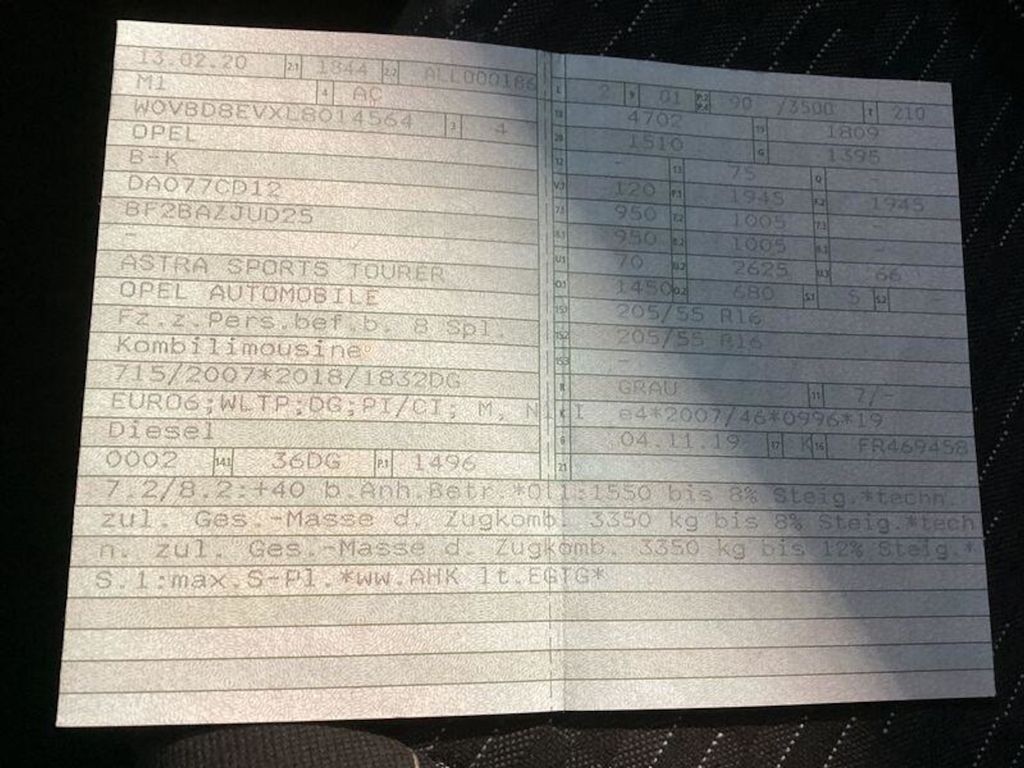 13.02.20 2.1 1844 2.2 ALL000186
M1 4 AC
W0VBD8EVXL8014564 3 4
OPEL
B-K
DA077CD12
BF2BAZJUD25
-
ASTRA SPORTS TOURER
OPEL AUTOMOBILE
Fz.z.Pers.bef.b. 8 Spl.
Kombilimousine
715/2007*2018/1832DG
EURO6;WLTP;DG;PI/CI; M, N1 I
Diesel
0002 14.1 36DG P.1 1496
L 2 9 01 P.2 P.4 90 /3500 T 210
18 4702 19 1809
20 1510 G 1395
12 - 13 75 Q -
V.7 120 F.1 1945 F.2 1945
7.1 950 7.2 1005 7.3 -
8.1 950 8.2 1005 8.3 -
U.1 70 U.2 2625 U.3 66
O.1 1450 O.2 680 S.1 5 S.2 -
15.1 205/55 R16
15.2 205/55 R16
15.3 -
R GRAU 11 7/-
K e4*2007/46*0996*19
6 04.11.19 17 K 16 FR469458
21
7.2/8.2:+40 b.Anh.Betr.*O.1:1550 bis 8% Steig.*techn.
zul. Ges.-Masse d. Zugkomb. 3350 kg bis 8% Steig.*tech
n. zul. Ges.-Masse d. Zugkomb. 3350 kg bis 12% Steig.*
S.1:max.S-Pl.*ww.AHK lt.EGTG*